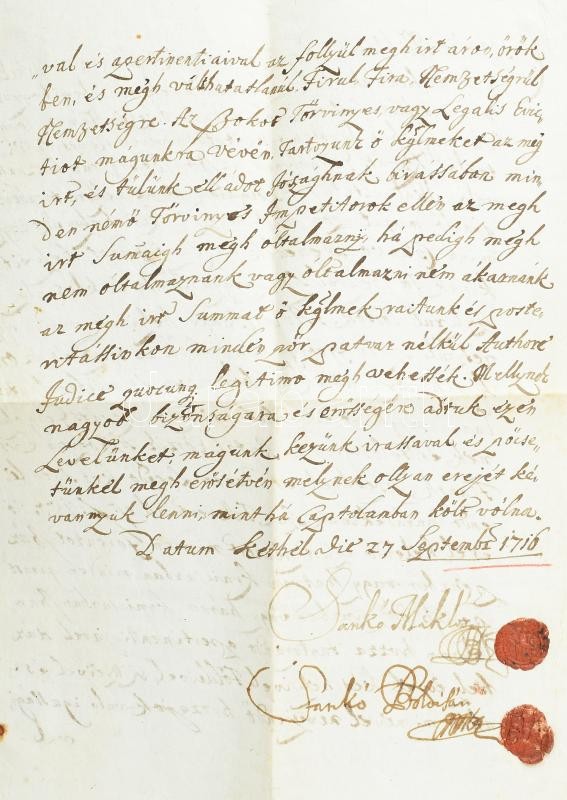 val és apertinentiaival az follyül megh irt áron, örök
ben, és megh válthatatlanúl, Firul Fira, Nemzetségrül
Nemzetségre. Az Bokor Törvinyes, vagy Legalis Evic,
tiot magunkra vévén, Tartozunk ő kglmeket az még
irt, és tülünk ell adot Jószághnak birassában min,
den némő Törvinyes Impetitorok ellen az megh
irt Sumaigh megh óltalmazni, há pedigh megh
nem óltalmaznank vagy óltalmazni ném akarnánk
az mégh irt Summat ő kglmek raitunk és poste,
ritássinkon minden pör patvar nélkül Authore
Judice quocunq legitimo megh vehessék. Mellynek
nagyob bizonságára és erősségére adtuk ezen
Levelünket, magunk kezünk irassaval és pöcse,
tünkel megh erősétvén melynek ollyan erejét ké,
vannyuk lenni, mint há Captolanban költ vólna.
Datum Késthél die 27 Septembr 1716
Sankó Miklos
Sankó Boldisár